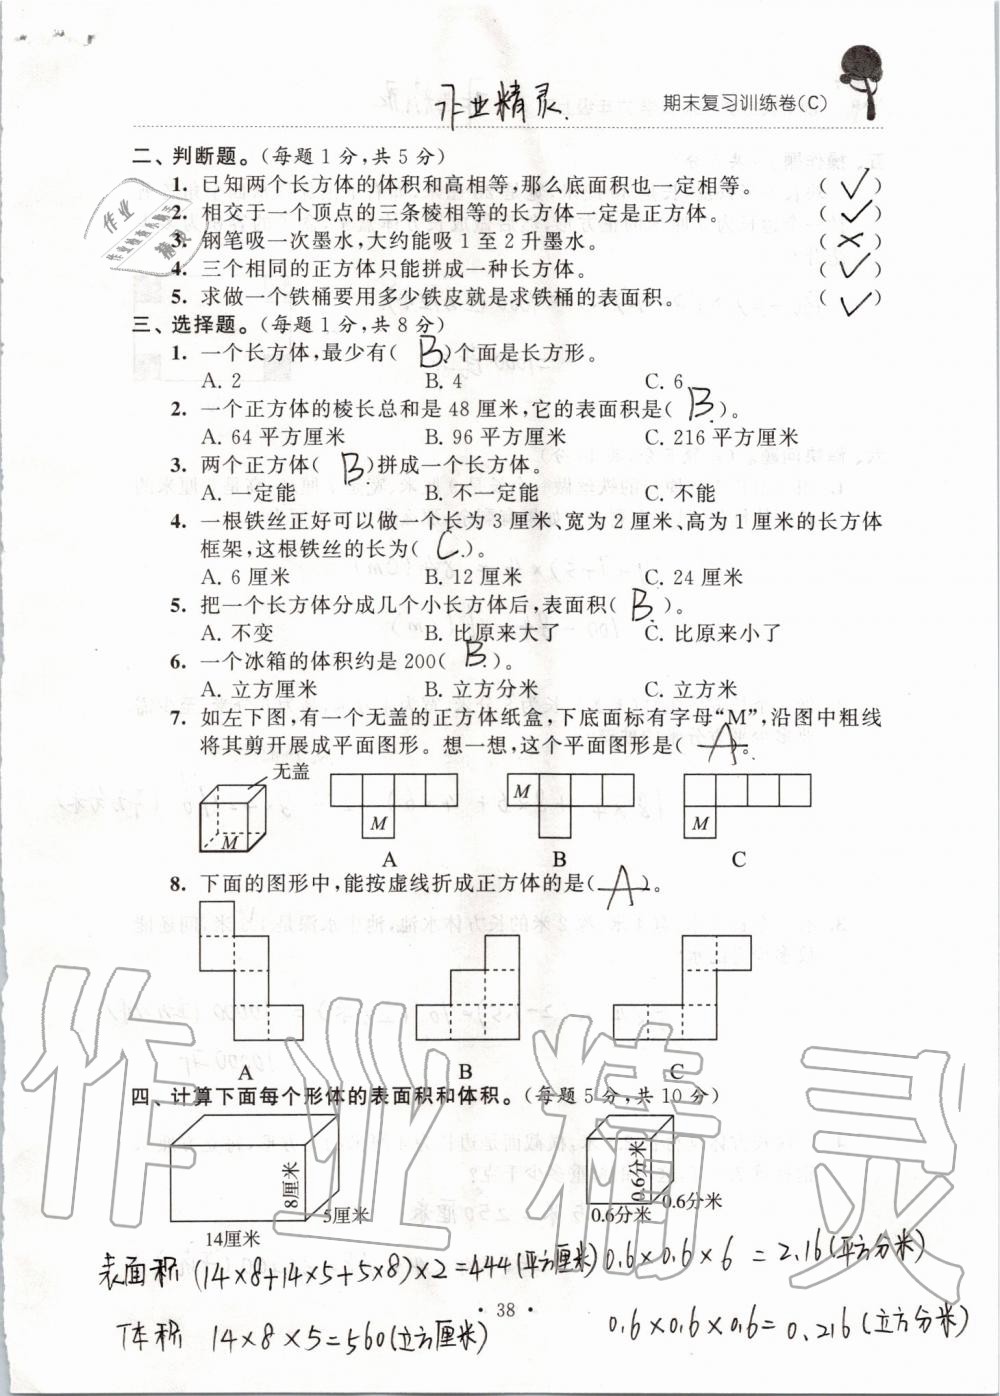 作业精灵.
期末复习训练卷(C)
二、判断题。(每题1分,共5分)
1. 已知两个长方体的体积和高相等,那么底面积也一定相等。 (✓)
2. 相交于一个顶点的三条棱相等的长方体一定是正方体。 (✓)
3. 钢笔吸一次墨水,大约能吸1至2升墨水。 (×)
4. 三个相同的正方体只能拼成一种长方体。 (✓)
5. 求做一个铁桶要用多少铁皮就是求铁桶的表面积。 (✓)
三、选择题。(每题1分,共8分)
1. 一个长方体,最少有( B )个面是长方形。
A. 2 B. 4 C. 6
2. 一个正方体的棱长总和是48厘米,它的表面积是( B )。
A. 64平方厘米 B. 96平方厘米 C. 216平方厘米
3. 两个正方体( B )拼成一个长方体。
A. 一定能 B. 不一定能 C. 不能
4. 一根铁丝正好可以做一个长为3厘米、宽为2厘米、高为1厘米的长方体
框架,这根铁丝的长为( C )。
A. 6厘米 B. 12厘米 C. 24厘米
5. 把一个长方体分成几个小长方体后,表面积( B )。
A. 不变 B. 比原来大了 C. 比原来小了
6. 一个冰箱的体积约是200( B )。
A. 立方厘米 B. 立方分米 C. 立方米
7. 如左下图,有一个无盖的正方体纸盒,下底面标有字母“M”,沿图中粗线
将其剪开展成平面图形。想一想,这个平面图形是( A )。
无盖
M M M M
A B C
8. 下面的图形中,能按虚线折成正方体的是( A )。
A B C
四、计算下面每个形体的表面积和体积。(每题5分,共10分)
8厘米 5厘米 14厘米
0.6分米 0.6分米 0.6分米
表面积 (14×8+14×5+5×8)×2=444(平方厘米) 0.6×0.6×6 = 2.16(平方分米)
体积 14×8×5=560(立方厘米) 0.6×0.6×0.6= 0.216(立方分米)
• 38 •
作业精灵